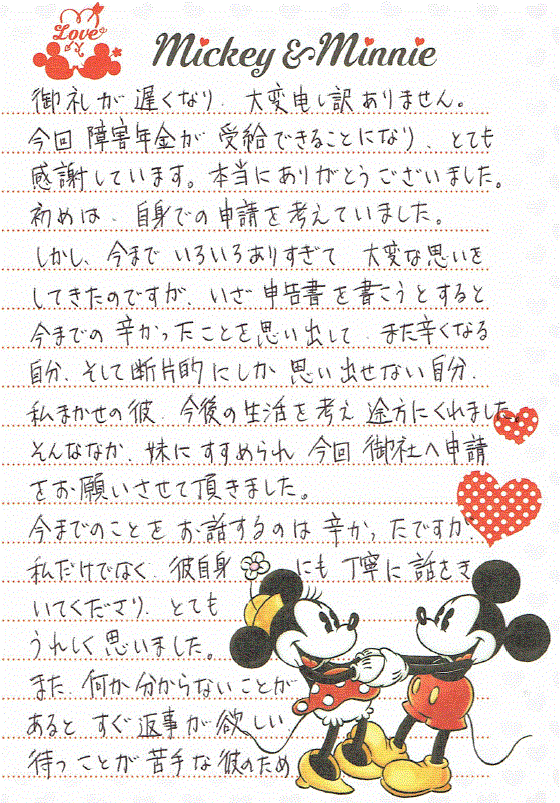 Love
Mickey & Minnie
御礼が遅くなり、大変申し訳ありません。
今回障害年金が受給できることになり、とても
感謝しています。本当にありがとうございました。
初めは、自身での申請を考えていました。
しかし、今までいろいろありすぎて 大変な思いを
してきたのですが、いざ申告書を書こうとすると
今までの辛かったことを思い出して、また辛くなる
自分、そして断片的にしか思い出せない自分、
私まかせの彼、今後の生活を考え途方にくれました。
そんななか、妹にすすめられ今回御社へ申請
をお願いさせて頂きました。
今までのことをお話するのは辛かったですが、
私だけでなく、彼自身にも丁寧に話をき
いてくださり、とても
うれしく思いました。
また、何か分からないことが
あるとすぐ返事が欲しい、
待つことが苦手な彼のため